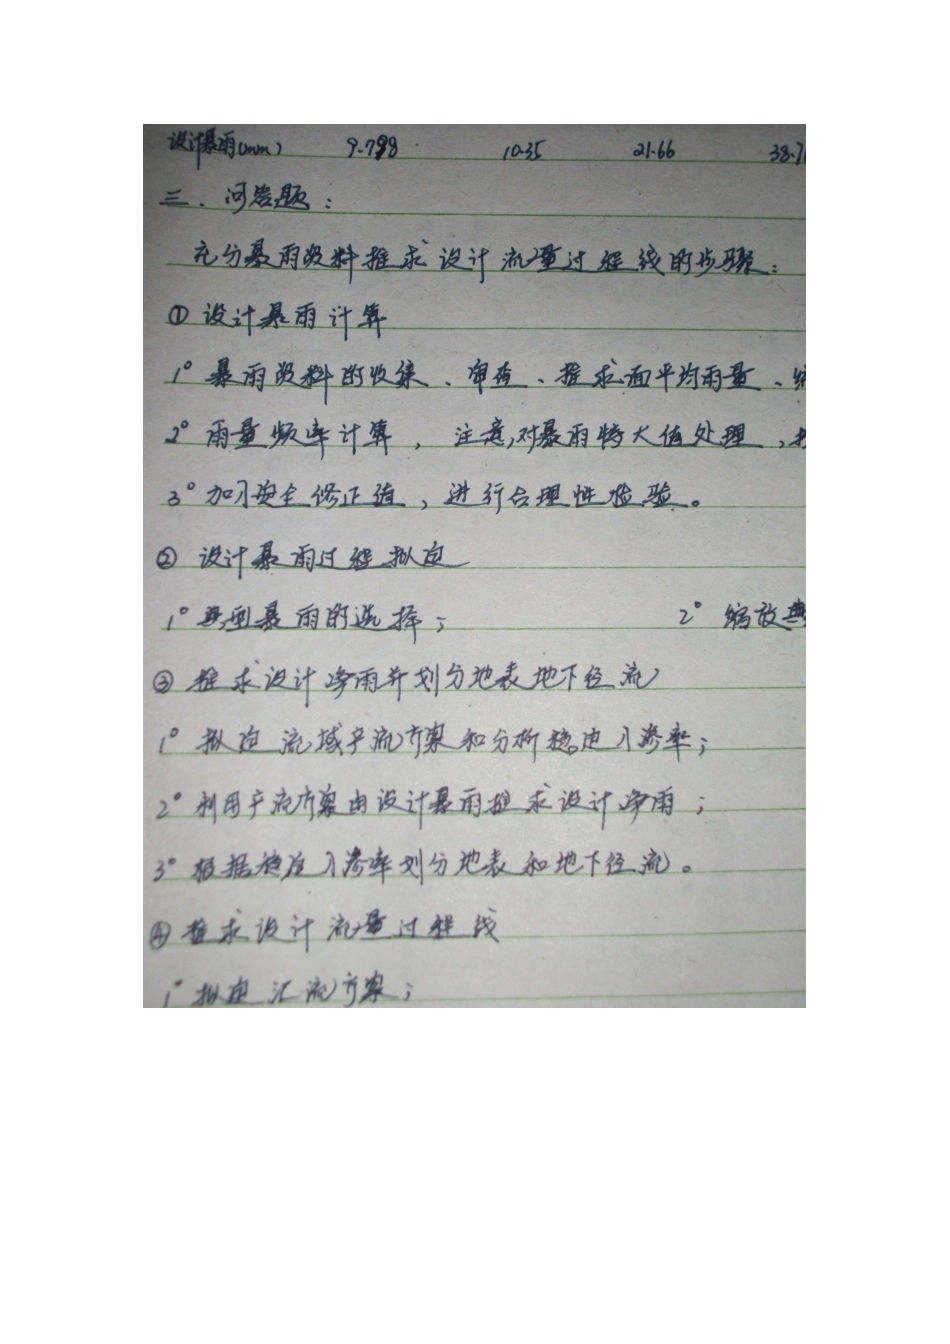 设计暴雨(mm) 9.798 10.35 21.66 38.7
三、问答题：
充分暴雨资料推求设计流量过程线的步骤：
① 设计暴雨计算
1° 暴雨资料的收集、审查、推求面平均雨量、
2° 雨量频率计算，注意，对暴雨特大值处理，
3° 加入安全修正值，进行合理性检验。
② 设计暴雨过程拟定
1° 典型暴雨的选择； 2° 缩放典
③ 推求设计净雨并划分地表地下径流
1° 拟定流域产流方案和分析稳定入渗率；
2° 利用产流方案由设计暴雨推求设计净雨；
3° 根据稳定入渗率划分地表和地下径流。
④ 推求设计流量过程线
1° 拟定汇流方案；